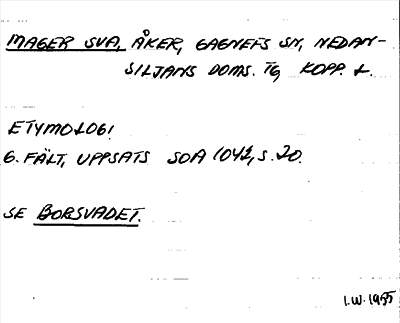 MAGER SVA, ÅKER, GAGNEFS SN, NEDAN-
SILJANS DOMS. TG, KOPP. L.
ETYMOLOGI
G. FÄLT, UPPSATS SOA 1042, S. 20.
SE BORSVADET.
I.W. 1955